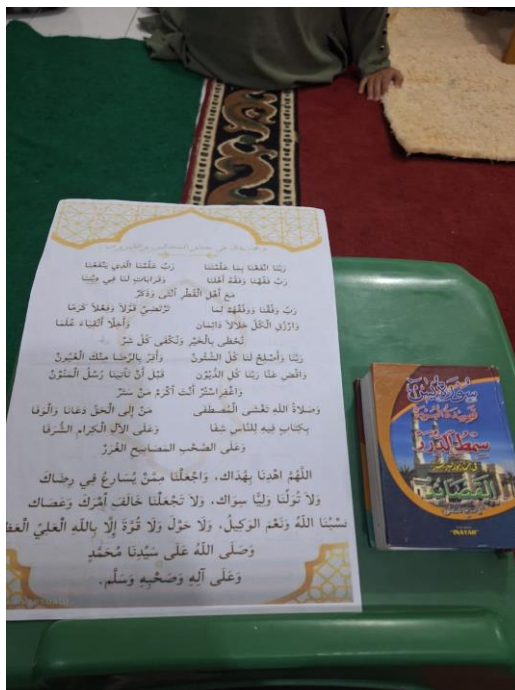 رَبَّنَا انْفَعْنَا بِمَا عَلَّمْتَنَا رَبِّ عَلِّمْنَا الَّذِي يَنْفَعُنَا
رَبِّ فَقِّهْنَا وَفَقِّهْ أَهْلَنَا وَقَرَابَاتٍ لَنَا فِي دِيْنِنَا
مَعَ أَهْلِ الْقُطْرِ أُنْثَى وَذَكَرْ
رَبِّ وَفِّقْنَا وَوَفِّقْهُمْ لِمَا تَرْتَضِيْ قَوْلاً وَفِعْلاً كَرَمَا
وَارْزُقِ الْكُلَّ حَلَالاً دَائِمَانِ وَأَخِلَّا أَتْقِيَاءَ عُلَمَا
نُحْظَى بِالْخَيْرِ وَنُكْفَى كُلَّ شَرْ
رَبَّنَا وَأَصْلِحْ لَنَا كُلَّ الشُّئُوْنْ وَأَقِرَّ بِالرِّضَا مِنْكَ الْعُيُوْنْ
وَاقْضِ عَنَّا رَبَّنَا كُلَّ الدُّيُوْنْ قَبْلَ أَنْ تَأْتِيَنَا رُسْلُ الْمَنُوْنْ
وَاغْفِرِ اسْتُرْ أَنْتَ أَكْرَمُ مَنْ سَتَرْ
وَصَلَاةُ اللهِ تَغْشَى الْمُصْطَفَى مَنْ إِلَى الْحَقِّ دَعَانَا وَالْوَفَا
بِكِتَابٍ فِيهِ لِلنَّاسِ شِفَا وَعَلَى الْآلِ الْكِرَامِ الشُّرَفَا
وَعَلَى الصَّحْبِ الْمَصَابِيحِ الْغُرَرْ
اللَّهُمَّ اهْدِنَا بِهُدَاكَ، وَاجْعَلْنَا مِمَّنْ يُسَارِعُ فِي رِضَاكَ
وَلَا تُوَلِّنَا وَلِيًّا سِوَاكَ، وَلَا تَجْعَلْنَا مِمَّنْ خَالَفَ أَمْرَكَ وَعَصَاكَ
حَسْبُنَا اللهُ وَنَعْمَ الوَكِيلُ، وَلَا حَوْلَ وَلَا قُوَّةَ إِلَّا بِاللهِ الْعَلِيِّ
وَصَلَّى اللهُ عَلَى سَيِّدِنَا مُحَمَّدٍ
وَعَلَى آلِهِ وَصَحْبِهِ وَسَلَّمَ.
سِمْطُ الدُّرَرْ
القَصَائِدْ
"INAYAH"